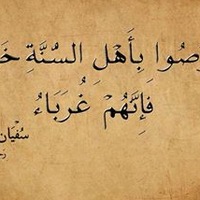 بِأَهْلِ السُّنَّةِ
فَإِنَّهُمْ غُرَبَاءُ
سُفْيَان